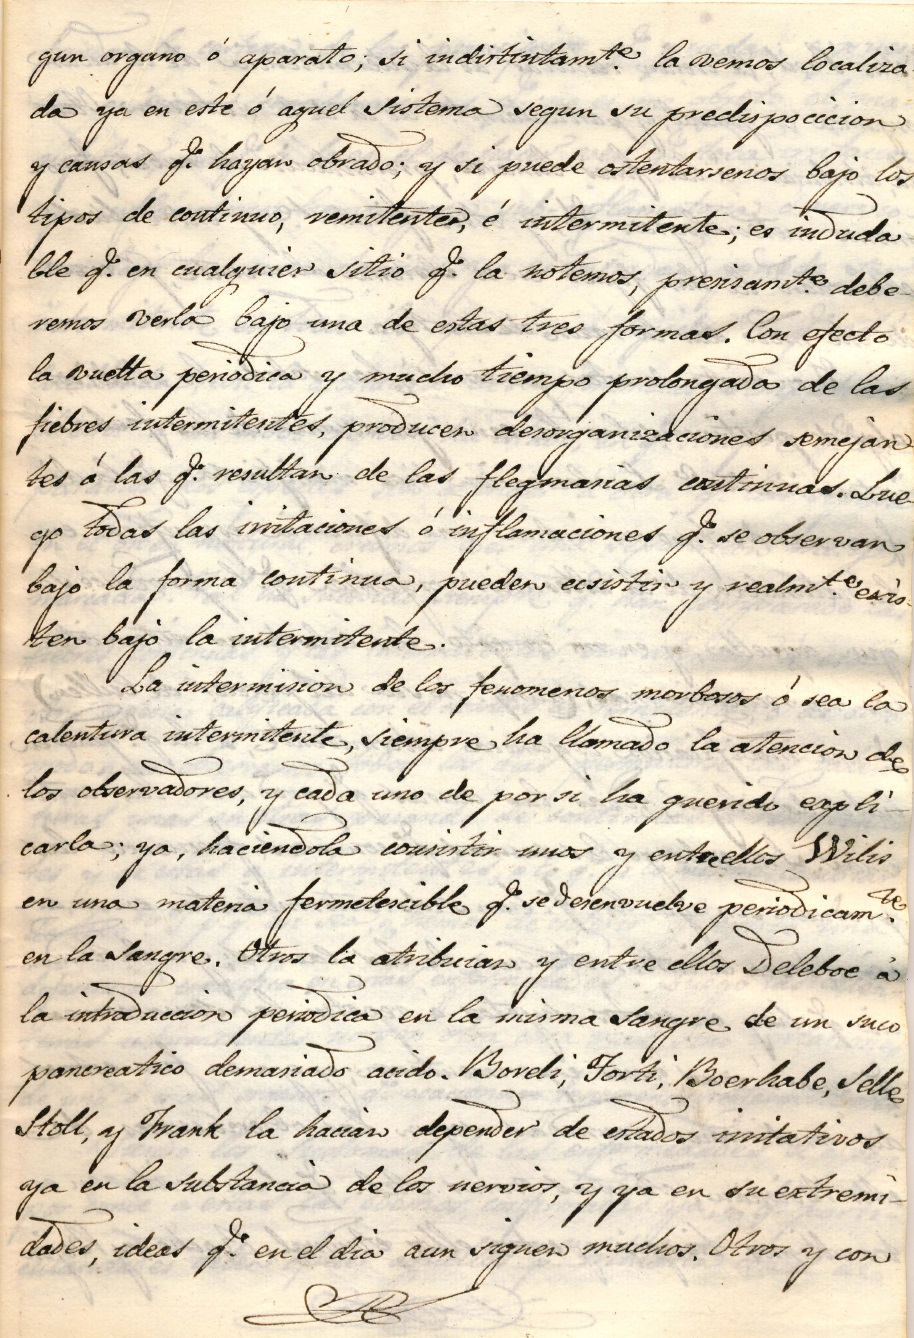 gun organo ó aparato; si indistintamte. la vemos localiza-
da ya en este ó aquel sistema segun su predisposicion
y causas q.e hayan obrado; y si puede ostentarsenos bajo los
tipos de continuo, remitente, é intermitente; es induda
ble q.e en cualquier sitio q.e la notemos, presisamte. debe-
remos verla bajo una de estas tres formas. Con efecto
la vuelta periodica y mucho tiempo prolongada de las
fiebres intermitentes, producen desorganizaciones semejan
tes á las q.e resultan de las flegmasias continuas. Lue-
go todas las irritaciones ó inflamaciones q.e se observan
bajo la forma continua, pueden ecsistir y realmte. exis-
ten bajo la intermitente.
La intermision de los fenomenos morbosos ó sea la
calentura intermitente, siempre ha llamado la atencion de
los observadores, y cada uno de por si ha querido espli-
carla; ya, haciendola consistir unos y entre ellos Wilis
en una materia fermetescible q.e se desenvuelve periodicamte.
en la sangre. Otros la atribuian y entre ellos Deleboe á
la introduccion periodica en la misma sangre de un suco
pancreatico demasiado acido. Boreli, Torti, Boerhabe, Selle
Stoll, y Frank la hacian depender de estados irritativos
ya en la substancia de los nervios, y ya en su extremi-
dades, ideas q.e en el dia aun siguen muchos. Otros y con